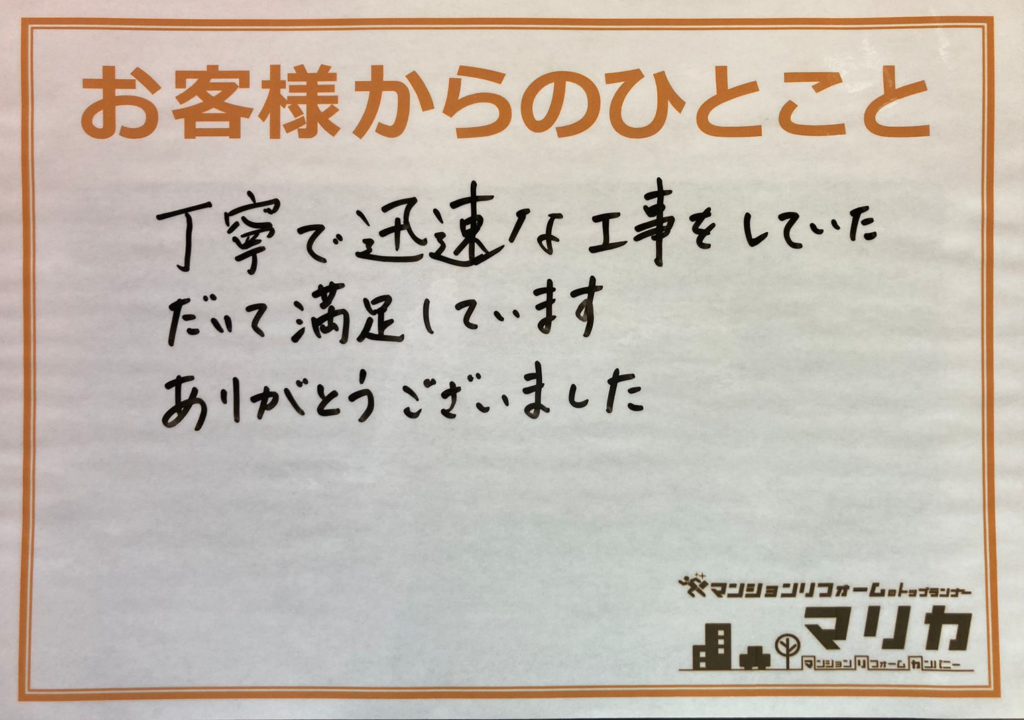 お客様からのひとこと
丁寧で迅速な工事をしていた
だいて満足しています
ありがとうございました
マンションリフォームのトップランナー
マリカ
マンションリフォームカンパニー